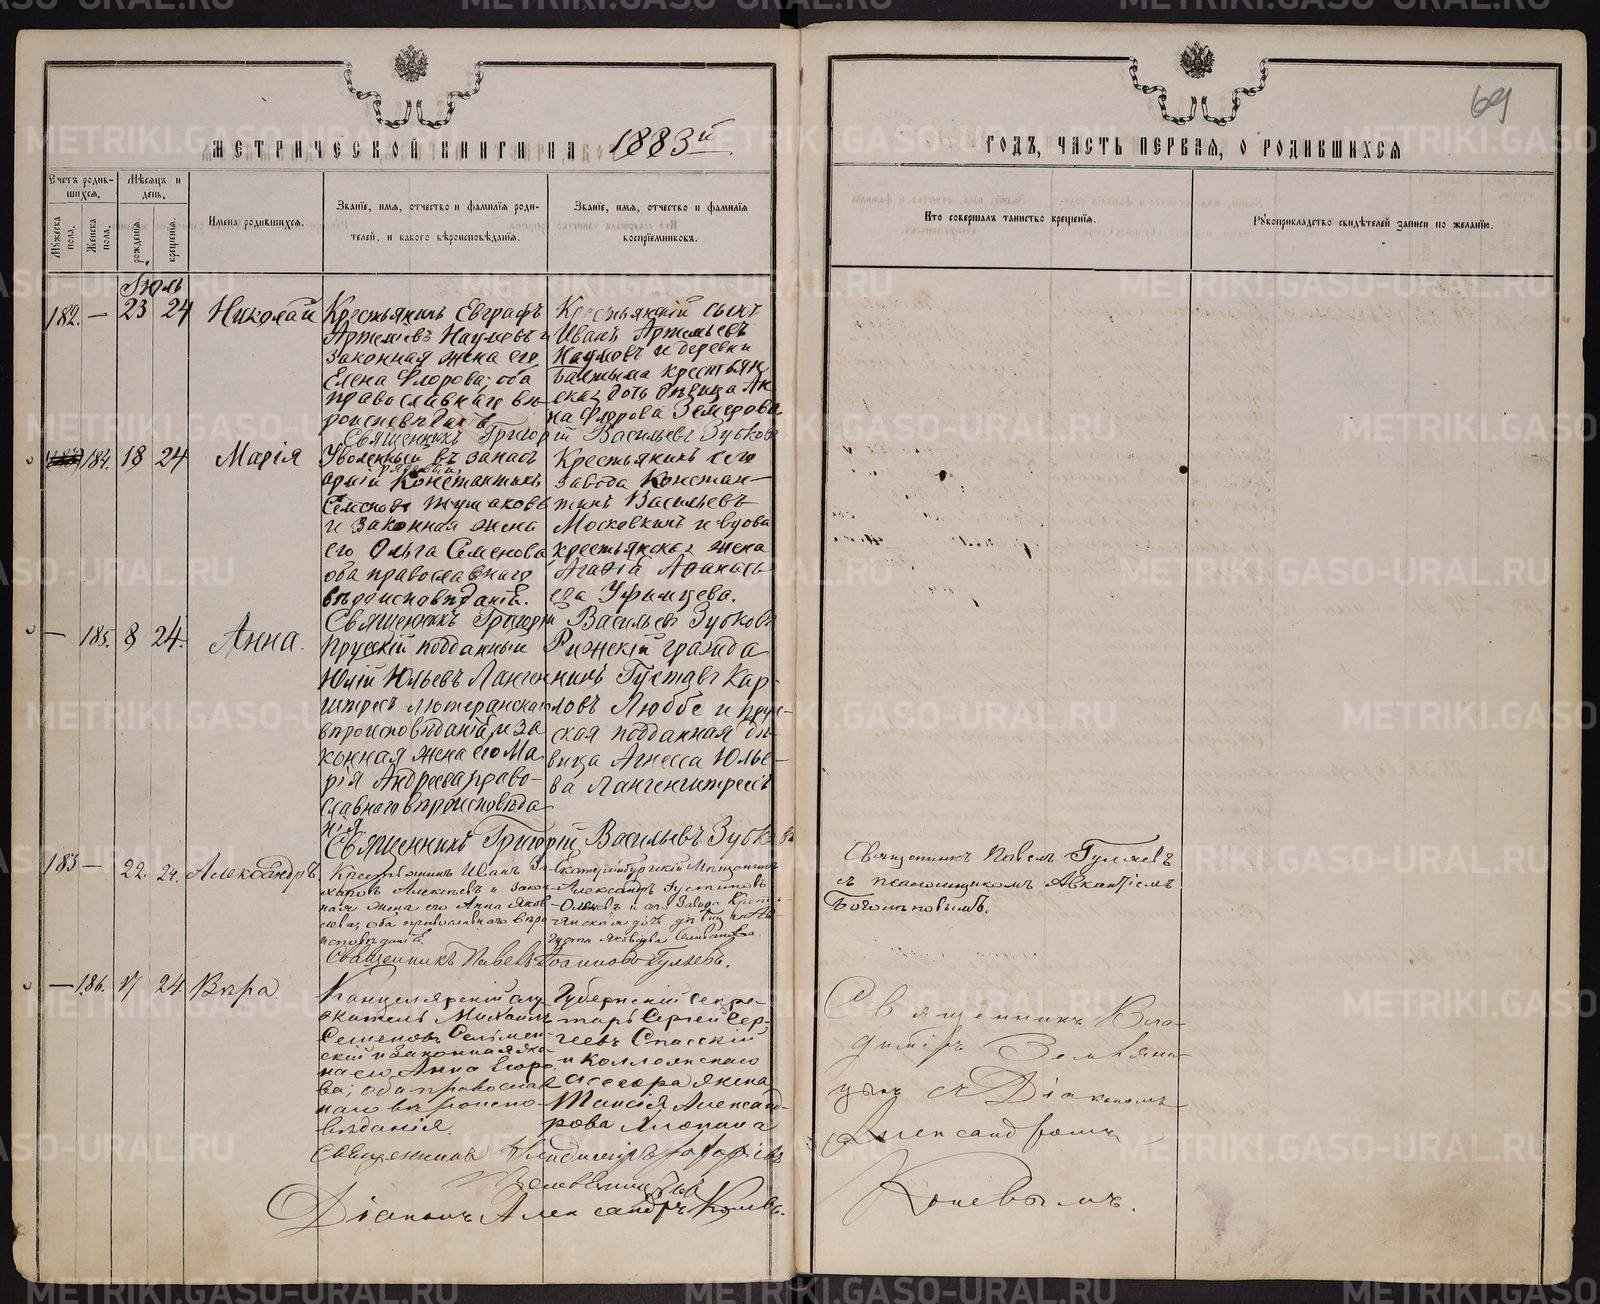 69
МЕТРИЧЕСКОЙ КНИГИ НА 1883й
ГОДЪ, ЧАСТЬ ПЕРВАЯ, О РОДИВШИХСЯ
Счетъ родившихся.
Мужеска пола.
Женска пола.
Мѣсяцъ и день.
рожденія.
крещенія.
Имена родившихся.
Званіе, имя, отчество и фамилія родителей, и какого вѣроисповѣданія.
Званіе, имя, отчество и фамилія воспріемниковъ.
Кто совершалъ таинство крещенія.
Рукоприкладство свидѣтелей записи по желанію.
Іюль
182. — 23 24 Николай
Крестьянинъ Евграфъ
Артемьевъ Наумовъ и
законная жена его
Елена Флорова; оба
православнаго вѣ-
роисповѣданія
Крестьянскій сынъ
Иванъ Артемьевъ
Наумовъ и деревни
Балтыма крестьян
ская дочь дѣвица Ан
на Флорова Земерова
Священникъ Григорій Васильевъ Зубковъ
184. 18 24 Марія
Уволенный въ запасъ
арміи рядовый Константинъ
Семеновъ
и законная жена
его Ольга Семенова
оба православнаго
вѣроисповѣданія.
Крестьянинъ сего
завода Констан-
тинъ Васильевъ
Московкинъ и вдова
крестьянская жена
Агафія Афанась-
ева Уфимцева.
Священникъ Григорій Васильевъ Зубковъ
— 185. 8 24. Анна.
Прусскій подданный
Юлій Юльевъ Ланген
штресъ лютеранскаго
вѣроисповѣданія, и за
конная жена его Ма
рія Андреева право-
славнаго вѣроисповѣда
нія
Рижскій гражда
нинъ Густавъ Кар-
ловъ Люббе и прус-
ская подданная дѣ
вица Агнесса Юлье-
ва Лангенштресъ
Священникъ Григорій Васильевъ Зубковъ
183 — 22. 24. Александръ
Крестьянинъ Иванъ За-
харовъ Алексѣевъ и закон
ная жена его Анна Яков
лева; оба православнаго вѣро
исповѣданія.
Екатеринбургскій Мѣщанинъ
Александръ Густиновъ
и сего завода Кресть
янская дочь дѣвица Ав
густа Яковлева
Священникъ Павелъ Іоанновъ Гуляевъ.
Священникъ Павелъ Гуляевъ
съ псаломщикомъ
— 186. 17 24 Вѣра.
Канцелярскій слу-
житель Михаилъ
Семеновъ
и законная же
на его Анна Егоро
ва; оба православ
наго вѣроиспо-
вѣданія.
Губернскій секре-
тарь Сергей Сер-
гѣевъ Спасскій
и Коллежскаго
ассесора жена
Таисія Александ-
рова
Священникъ Владиміръ
Діаконъ Александръ Коневъ.
Священникъ Вла-
диміръ Земляни-
цынъ съ Діакономъ
Александромъ
Коневымъ.
METRIKI.GASO-URAL.RU